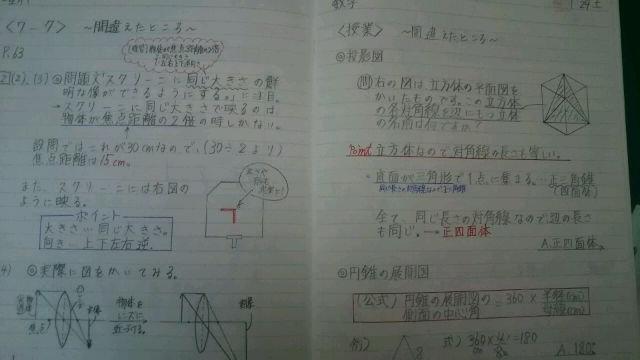 <ワーク> ~間違えたところ~
P.63
2(2),(3)◎問題文「スクリーンに同じ大きさの鮮
明な像ができるようにする。」に注目。
→スクリーンに同じ大きさで映るのは
物体が焦点距離の2倍の時しかない。
設問ではこれが30cmなので、(30÷2より)
焦点距離は15cm。
また、スクリーンには右図の
ように映る。
ポイント
大きさ…同じ大きさ。
向き…上下左右逆。
4) ◎実際に図をかいてみる。
物体を
近づける。
数学
24土
<授業> ~間違えたところ~
◎投影図
問 右の図は、立方体の平面図を
かいたものである。この立方体
の各対角線を辺にもつ立体
の名前は何であるか?
Point 立方体なので対角線の長さも等しい。
底面が三角形で1点に集まる。…正三角錐
(四面体)
全て、同じ長さの対角線なので辺の長さ
も同じ。→正四面体
A.正四面体
◎円錐の展開図
(公式) 円錐の展開図の側面の中心角 = 360 × 半径(cm)/母線(cm)
例)
式) 360× =180
A. 180°